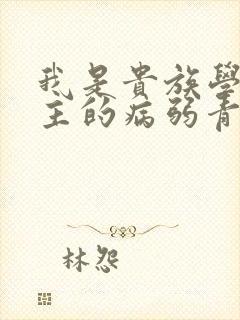 我是貴族學
主的病弱青
林怨